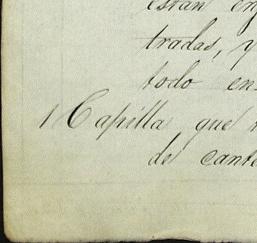 estan en
tradas, y
todo en
1 Capilla que
de cante